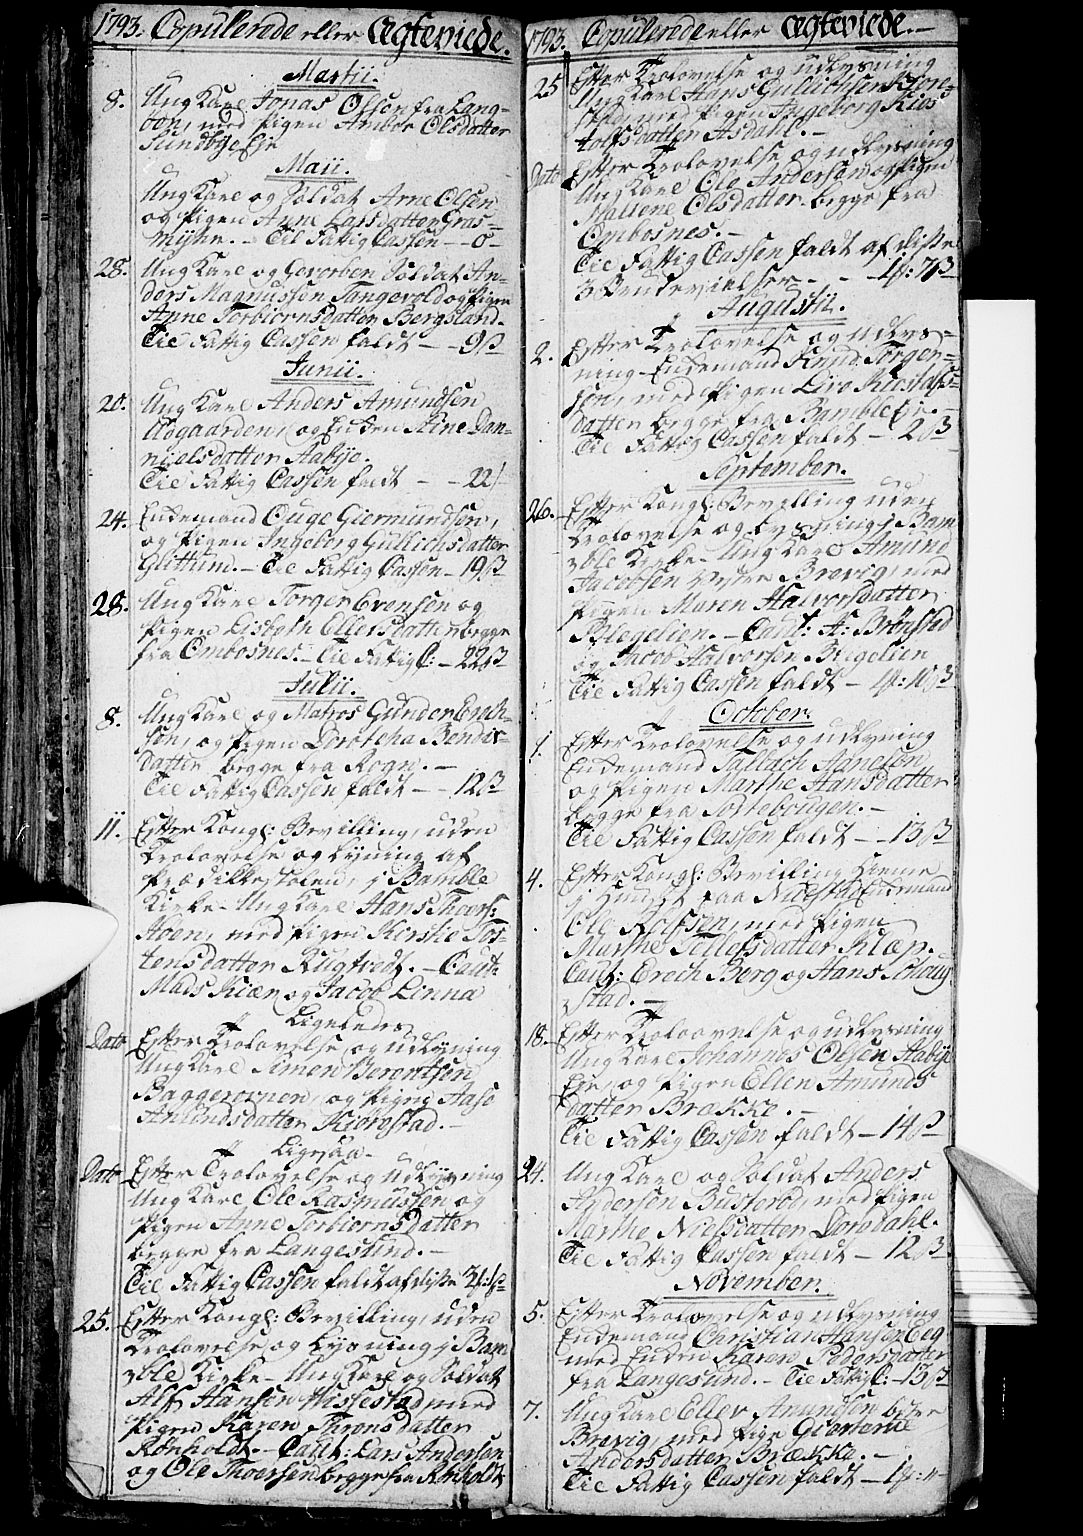 1793. Copulerede eller Ægteviede.
Martii.
8. Ung Karl Jonas Olsen fra Lang-
ton, med Pigen Ambor Olsdatter
Sundbye Eje
Maii.
Ung Karl og Soldat Arne Olsen
og Pigen Anne Larsdatter Gras-
myhr. - Til Fattig Cassen - 0 -
28. Ung Karl og Gevorben Soldat An-
ders Magnussen Tangevold og Pigen
Anne Torbiornsdatter Bergsland.
Til Fattig Cassen faldt - - 9 ß
Junii.
20. Ung Karl Anders Amundsen
Aasgaarden, og Enken Anne Dan-
nielsdatter Aabÿe.
Til Fattig Cassen faldt - - 22 ß
24. Enkemand Ouge Giermundsen,
og Pigen Ingeborg Gullichsdatter
Glittum. - Til Fattig Cassen - 19 ß
28. Ung Karl Torger Evensen og
Pigen Lisbeth Ellefsdatter begge
fra Ombosnes. - Til Fattig C: - 22 ß
Julii.
8. Ung Karl og Matros Gunder Erich-
sen, og Pigen Dorothea Bendix-
datter begge fra Rogn. -
Til Fattig Cassen faldt - - 12 ß
11. Efter Kongl: Bevilling, uden
Trolovelse og Lysning af
Prædikestolen, i Bamble
Kirke - Ung Karl Hans Thors:
Aaen, med Pigen Kirstie Tos-
tensdatter Rugtvedt. - Caut:
Mads Kiær og Jacob Linna
Ligeledes
Dato Efter Trolovelse og udlysning
Ung Karl Simen Berentsen
Baggerovnen, og Pigen Aase
Amundsdatter Kiørestad. -
Ligesaa -
Dato Efter Trolovelse og udlysning
Ung Karl Ole Rasmussen og
Pigen Anne Torbiornsdatter
begge fra Langesund. -
Til Fattig Cassen faldt af disse
25. Efter Kongl: Bevilling, uden
Trolovelse og Lysning i Bam
ble Kirke - Ung Karl og Soldat
Alf Hansen Hissestad med
Pigen Karen Thronsdatter
Rønholdt. - Caut: Lars Andersen
og Ole Thorsen begge fra Rønholdt
1793. Copulerede eller Ægteviede. -
25 Efter Trolovelse og udlysning
Ung Karl Hans Gulichsen
med Pigen Ingeborg Kios-
tolfsdatter Asdahl. -
Dato Efter Trolovelse og udlysning
Ung Karl Ole Andersen og Pigen
Maltene Olsdatter begge fra
Ombosnes. -
Til Fattig Cassen faldt af disse
3 Brudevielser - - - 1 f: 7 ß
Augusti.
2. Efter Trolovelse og udlys-
ning Enkemand Knud Torgen-
sen, med Pigen Live Kiostolfs-
datter begge fra Bamble Eje. -
Til Fattig Cassen faldt - 20 ß
September.
26. Efter Kongl: Bevilling uden
Trolovelse og Lysning i Bam
ble Kirke - Ung Karl Amund
Jacobsen Østre Brevig, med
Pigen Maren Halvorsdatter
Blegelien. - Caut: A: Brønstad
og Jacob Halvorsen Blegelien
Til Fattig Cassen faldt - 1 f: 10 ß
October.
1. Efter Trolovelse og udlysning
Enkemand Tallach Hanesen
og Pigen Marthe Hansdatter
begge fra Tostebridgen. -
Til Fattig Cassen faldt - - 13 ß
4. Efter Kongl: Bevilling hieme
i Huuset paa Nilestad Enkemand
Ole Rolfsen, med Pigen
Marthe Tollefsdatter Klæp.
Caut: Erech Berg og Hans Schaug
stad. -
18. Efter Trolovelse og udlysning
Ung Karl Johannes Olsen Aabÿe
Eje, og Pigen Ellen Amunds
datter Brække. -
Til Fattig Cassen faldt - 14 ß
24. Ung Karl og Soldat Anders
Andersen Busterød, med Pigen
Marthe Nielsdatter Dørdahl.
Til Fattig Cassen faldt - 12 ß
November.
5. Efter Trolovelse og udlysning
Enkemand Christian Hansen Eeg
med Enken Karen Pedersdatter
fra Langesund. - Til Fattig C: - 13 ß
7. Ung Karl Ellev Amundsen
Brevig, med Pige
Andersdatter Brække. -
Til Fattig Cassen faldt - 1 f: -